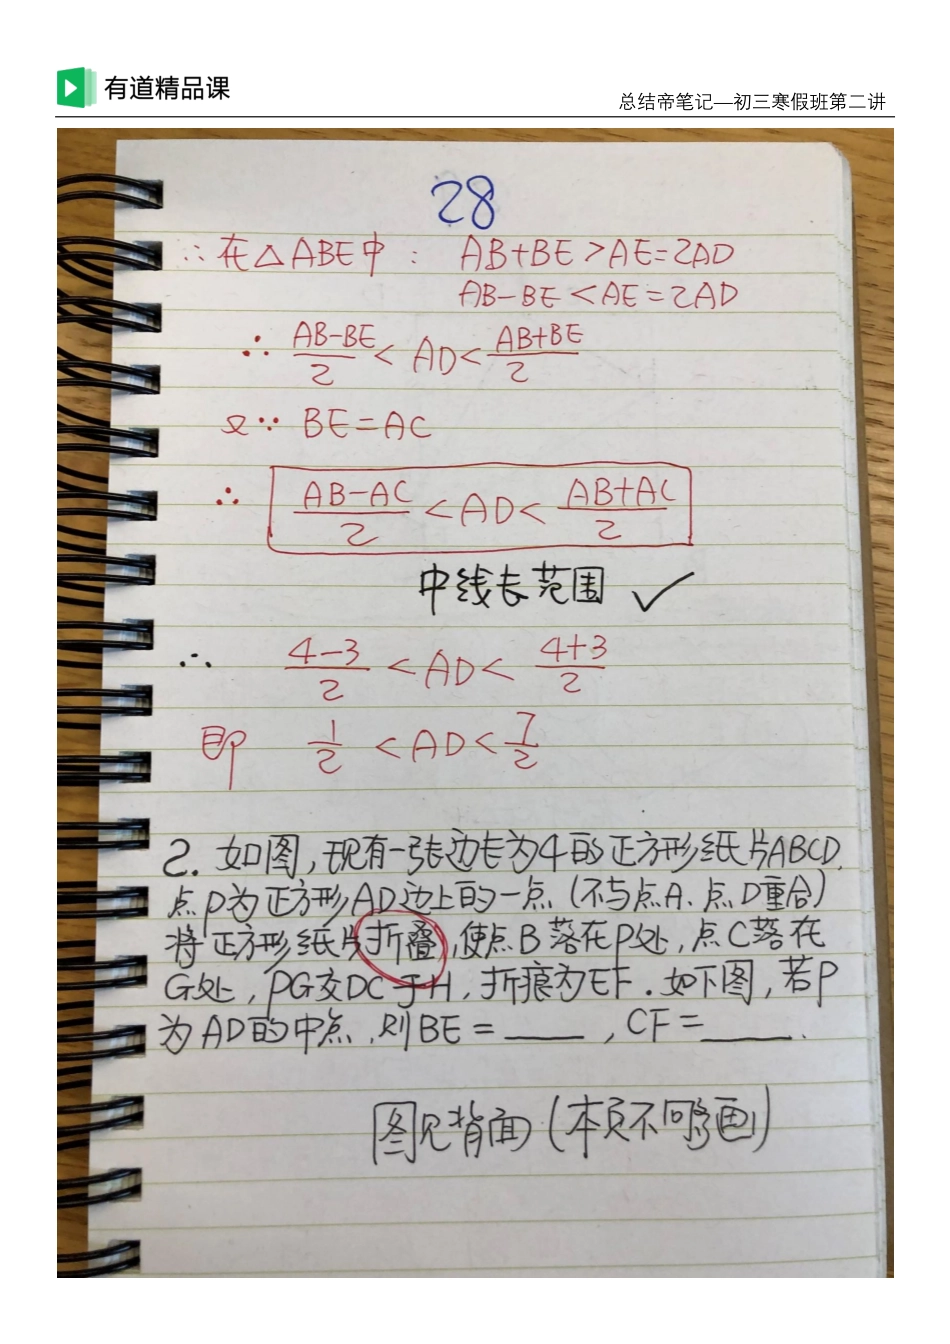 有道精品课
总结帝笔记—初三寒假班第二讲
28
∴在△ABE中: AB+BE>AE=2AD
AB-BE<AE=2AD
∴ (AB-BE)/2 < AD < (AB+BE)/2
又∵ BE=AC
∴ (AB-AC)/2 < AD < (AB+AC)/2
中线长范围 ✓
∴ (4-3)/2 < AD < (4+3)/2
即 1/2 < AD < 7/2
2. 如图,现有一张边长为4的正方形纸片ABCD,
点P为正方形AD边上的一点(不与点A、点D重合)
将正方形纸片折叠,使点B落在P处,点C落在
G处,PG交DC于H,折痕为EF.如下图,若P
为AD的中点,则BE=____,CF=____.
图见背面(本页不够画)